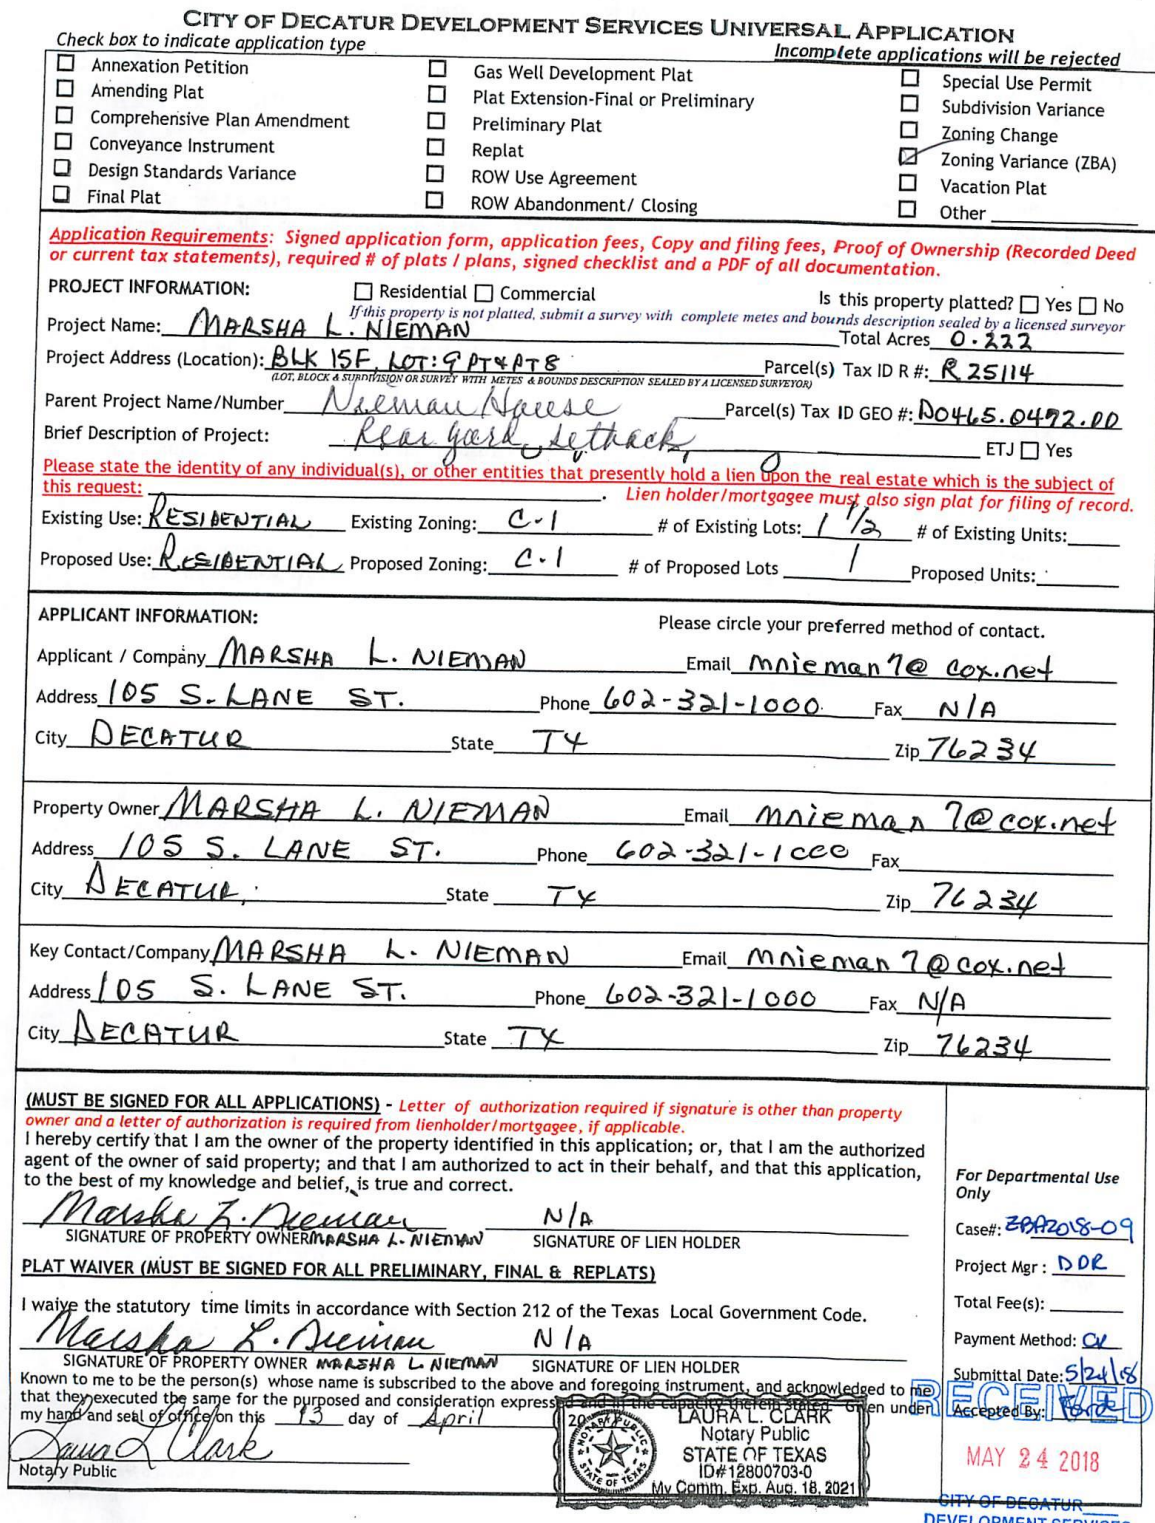 CITY OF DECATUR DEVELOPMENT SERVICES UNIVERSAL APPLICATION
Check box to indicate application type
Incomplete applications will be rejected
Annexation Petition
Amending Plat
Comprehensive Plan Amendment
Conveyance Instrument
Design Standards Variance
Final Plat
Gas Well Development Plat
Plat Extension-Final or Preliminary
Preliminary Plat
Replat
ROW Use Agreement
ROW Abandonment/ Closing
Special Use Permit
Subdivision Variance
Zoning Change
Zoning Variance (ZBA)
Vacation Plat
Other
Application Requirements: Signed application form, application fees, Copy and filing fees, Proof of Ownership (Recorded Deed
or current tax statements), required # of plats / plans, signed checklist and a PDF of all documentation.
PROJECT INFORMATION: Residential Commercial Is this property platted? Yes No
If this property is not platted, submit a survey with complete metes and bounds description sealed by a licensed surveyor
Project Name: MARSHA L. NIEMAN Total Acres 0.222
Project Address (Location): BLK 15F, LOT: 9 PT & PT 8 Parcel(s) Tax ID R #: R 25114
(LOT, BLOCK & SUBDIVISION OR SURVEY WITH METES & BOUNDS DESCRIPTION SEALED BY A LICENSED SURVEYOR)
Parent Project Name/Number Nieman House Parcel(s) Tax ID GEO #: D0465.0472.00
Brief Description of Project: Rear yard setback ETJ Yes
Please state the identity of any individual(s), or other entities that presently hold a lien upon the real estate which is the subject of
this request: . Lien holder/mortgagee must also sign plat for filing of record.
Existing Use: RESIDENTIAL Existing Zoning: C-1 # of Existing Lots: 1 1/2 # of Existing Units:
Proposed Use: RESIDENTIAL Proposed Zoning: C-1 # of Proposed Lots 1 Proposed Units:
APPLICANT INFORMATION: Please circle your preferred method of contact.
Applicant / Company MARSHA L. NIEMAN Email mnieman7@cox.net
Address 105 S. LANE ST. Phone 602-321-1000 Fax N/A
City DECATUR State TX Zip 76234
Property Owner MARSHA L. NIEMAN Email mnieman7@cox.net
Address 105 S. LANE ST. Phone 602-321-1000 Fax
City DECATUR, State TX Zip 76234
Key Contact/Company MARSHA L. NIEMAN Email mnieman7@cox.net
Address 105 S. LANE ST. Phone 602-321-1000 Fax N/A
City DECATUR State TX Zip 76234
(MUST BE SIGNED FOR ALL APPLICATIONS) - Letter of authorization required if signature is other than property
owner and a letter of authorization is required from lienholder/mortgagee, if applicable.
I hereby certify that I am the owner of the property identified in this application; or, that I am the authorized
agent of the owner of said property; and that I am authorized to act in their behalf, and that this application,
to the best of my knowledge and belief, is true and correct.
Marsha L. Nieman N/A
SIGNATURE OF PROPERTY OWNER MARSHA L. NIEMAN SIGNATURE OF LIEN HOLDER
PLAT WAIVER (MUST BE SIGNED FOR ALL PRELIMINARY, FINAL & REPLATS)
I waive the statutory time limits in accordance with Section 212 of the Texas Local Government Code.
Marsha L. Nieman N/A
SIGNATURE OF PROPERTY OWNER MARSHA L NIEMAN SIGNATURE OF LIEN HOLDER
Known to me to be the person(s) whose name is subscribed to the above and foregoing instrument, and acknowledged to me
that they executed the same for the purposed and consideration expressed and in the capacity therein stated. Given under
my hand and seal of office on this 13 day of April 20
Laura L Clark
Notary Public
NOTARY PUBLIC
STATE OF TEXAS
LAURA L. CLARK
Notary Public
STATE OF TEXAS
ID#12800703-0
My Comm. Exp. Aug. 18, 2021
For Departmental Use
Only
Case#: ZBA2018-09
Project Mgr : DDR
Total Fee(s):
Payment Method: CK
Submittal Date: 5/24/18
Accepted By:
RECEIVED
MAY 24 2018
CITY OF DECATUR
DEVELOPMENT SERVICES